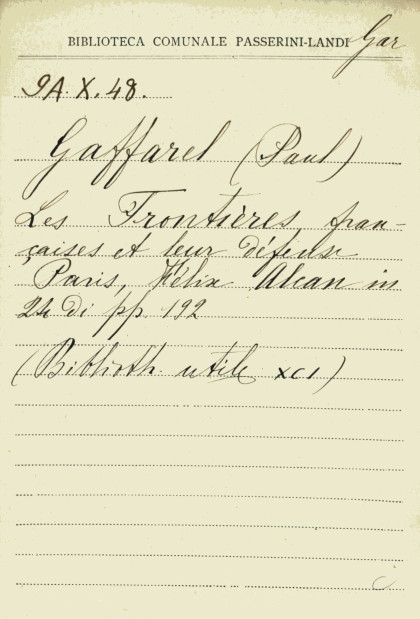 BIBLIOTECA COMUNALE PASSERINI-LANDI Gar
9A.X.48.
Gaffarel (Paul)
Les Frontières fran-
çaises et leur défense
Paris, Félix Alcan in
24 di pp 192
(Biblioth. utile XCI)